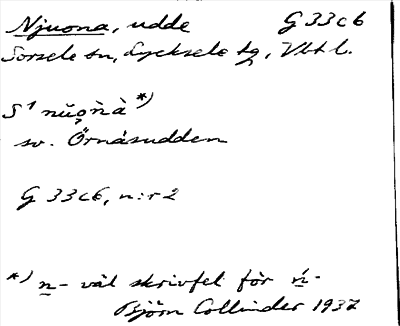 Njuona, udde G 33c6
Sorsele sn, Lycksele tg, Vbtl.
S¹ nŭǫǹà *)
sv. Örnäsudden
G 33c6, n:r 2
*) n- väl skrivfel för ń-
Björn Collinder 1937